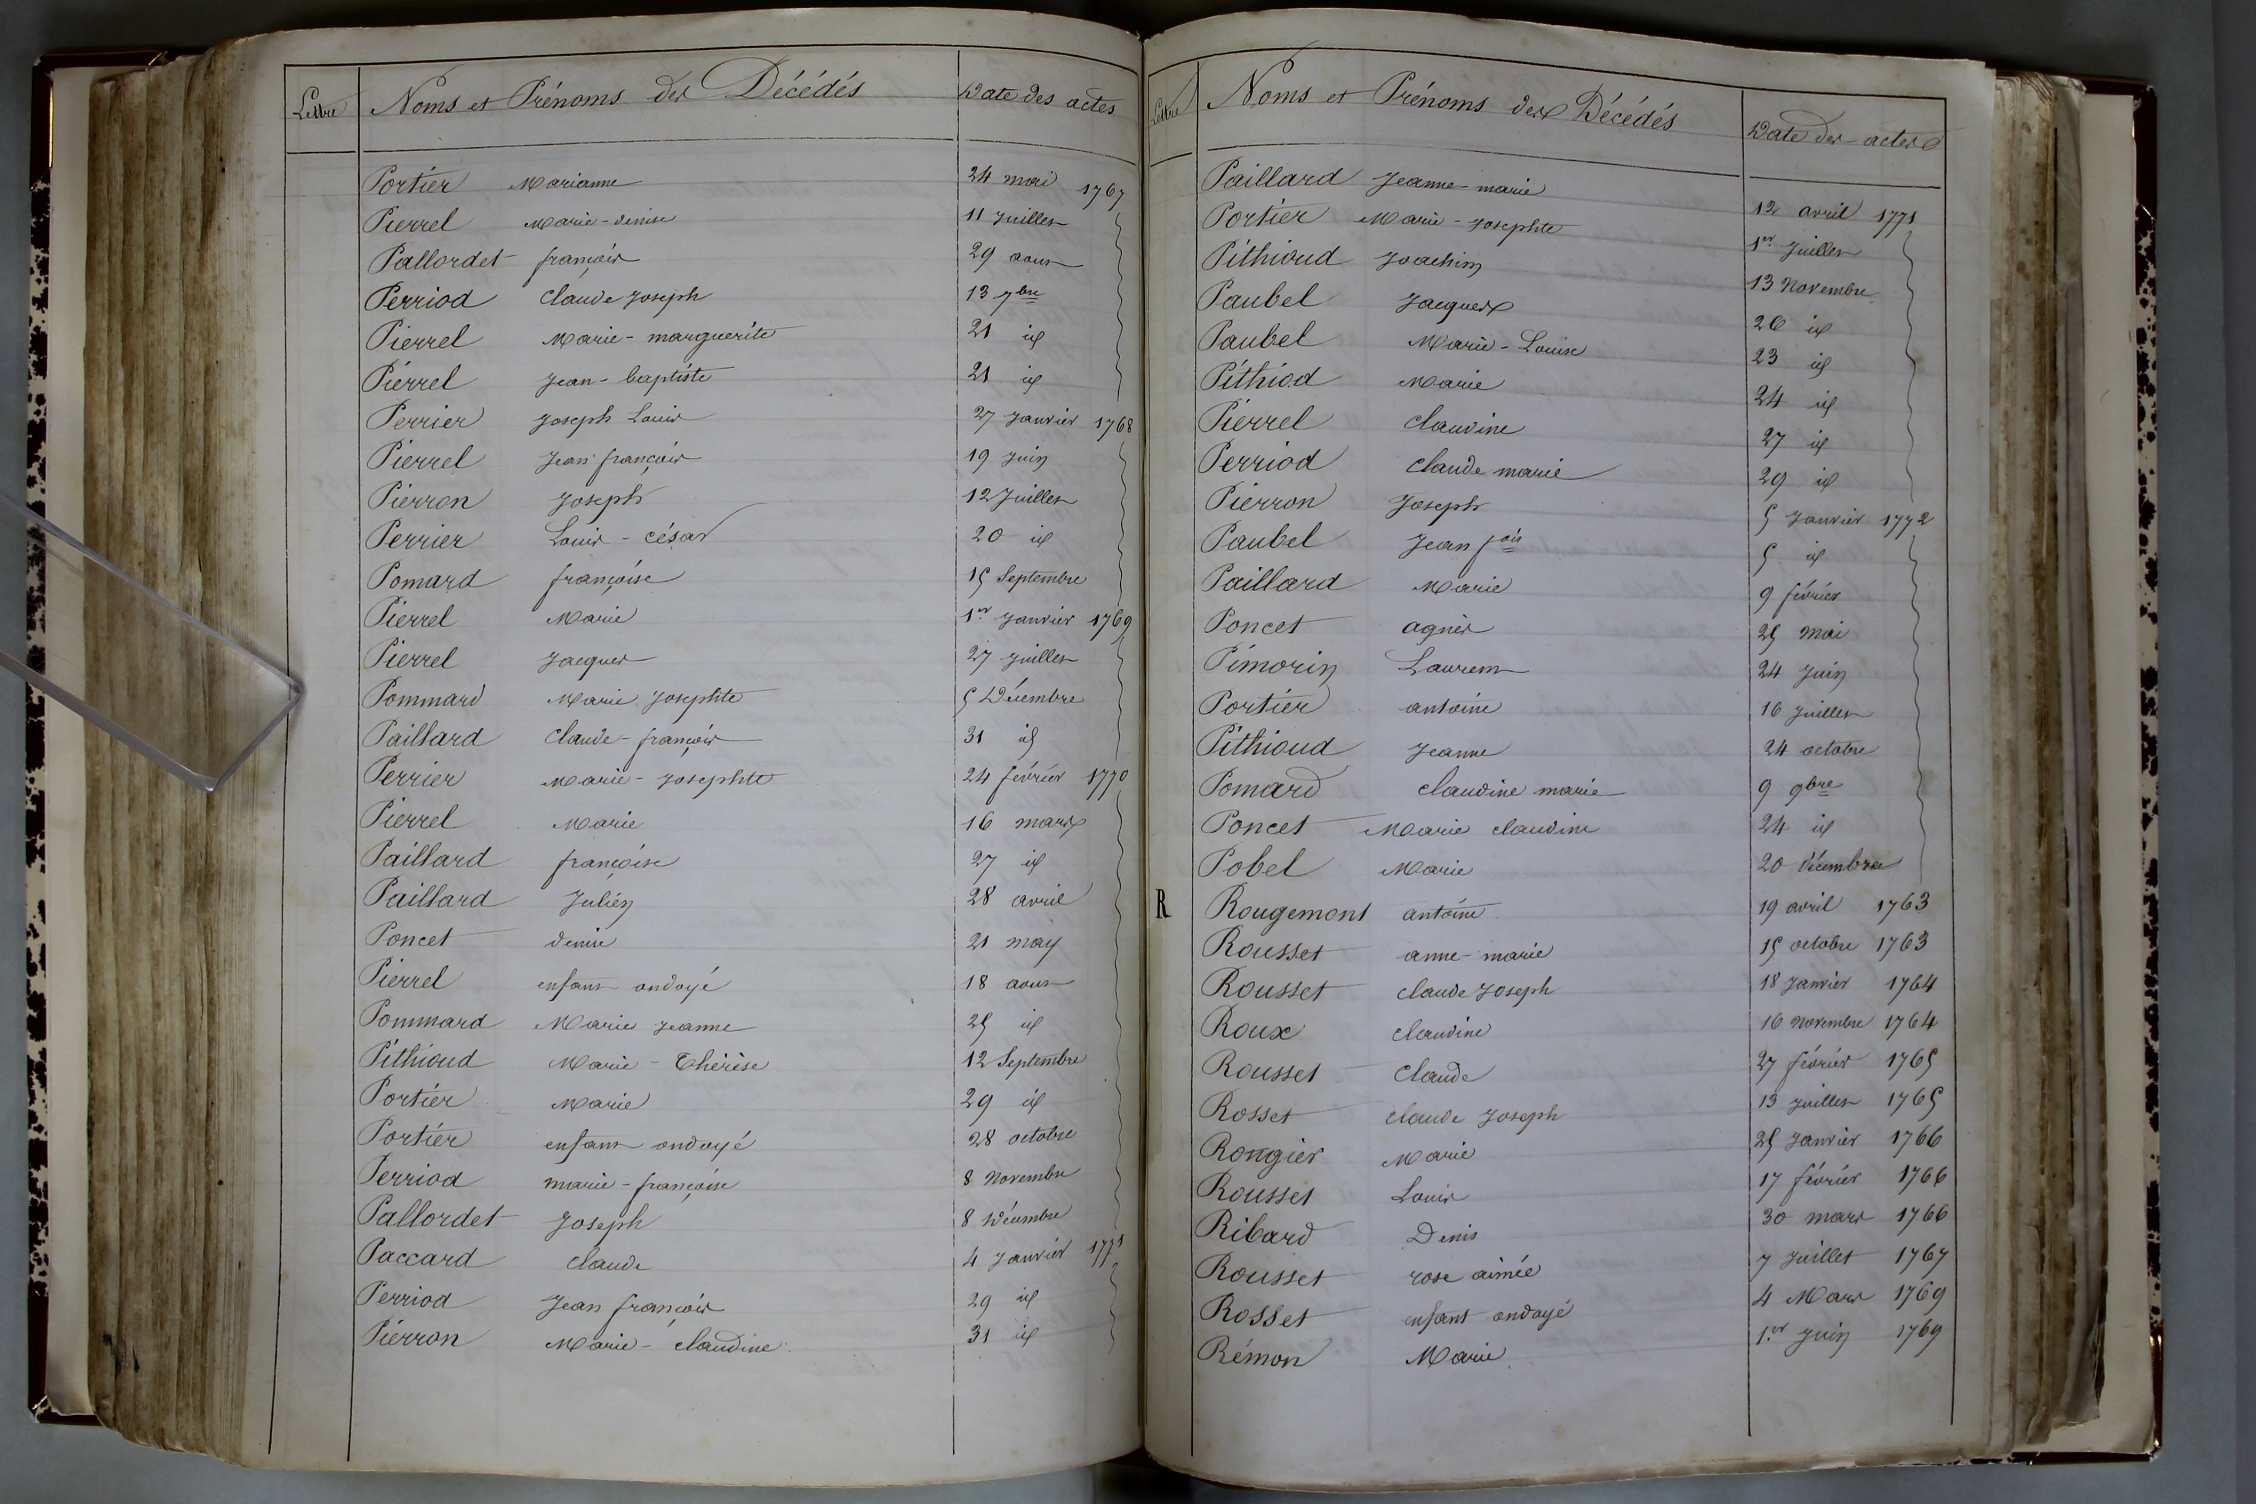 Lettre Noms et Prénoms des Décédés Date des actes
Portier Marianne 24 mai 1767
Pierrel Marie-denise 11 juillet
Pallordet françois 29 aout
Perriod Claude Joseph 13 7bre
Pierrel Marie-marguerite 21 id
Pierrel Jean-baptiste 21 id
Perrier Joseph Louis 27 Janvier 1768
Pierrel Jean françois 19 Juin
Pierron Joseph 12 Juillet
Perrier Louis-césar 20 id
Pomard françoise 15 Septembre
Pierrel Marie 1er Janvier 1769
Pierrel Jacques 27 Juillet
Pommard Marie Josephte 5 Décembre
Paillard Claude-françois 31 id
Perrier Marie-Josephte 24 février 1770
Pierrel Marie 16 mars
Paillard françoise 27 id
Paillard Julien 28 avril
Poncet denise 21 may
Pierrel enfant ondoyé 18 aout
Pommard Marie Jeanne 25 id
Pithioud Marie-Thérèse 12 Septembre
Portier Marie 29 id
Portier enfant ondoyé 28 octobre
Perriod marie-françoise 8 Novembre
Pallordet Joseph 8 Décembre
Paccard Claude 4 Janvier 1771
Perriod Jean françois 29 id
Pierron Marie-Claudine 31 id
Lettre Noms et Prénoms des Décédés Date des actes
Paillard Jeanne-marie 12 avril 1771
Portier Marie-Josephte 1er Juillet
Pithioud Joachim 13 Novembre
Paubel Jacques 26 id
Paubel Marie-Louise 23 id
Pithiod Marie 24 id
Pierrel Claudine 27 id
Perriod Claude marie 29 id
Pierron Joseph 5 Janvier 1772
Paubel Jean fois 5 id
Paillard Marie 9 février
Poncet agnès 25 mai
Pimorin Laurent 24 Juin
Portier antoine 16 Juillet
Pithioud Jeanne 24 octobre
Pomard Claudine marie 9 9bre
Poncet Marie Claudine 24 id
Pobel Marie 20 décembre
R Rougemont antoine 19 avril 1763
Rousset anne-marie 15 octobre 1763
Rousset Claude Joseph 18 Janvier 1764
Roux Claudine 16 Novembre 1764
Rousset Claude 27 février 1765
Rosset Claude Joseph 13 Juillet 1765
Rongier Marie 25 Janvier 1766
Rousset Louis 17 février 1766
Ribard Denis 30 mars 1766
Rousset rose aimée 7 Juillet 1767
Rosset enfant ondoyé 4 Mars 1769
Rémon Marie 1.er Juin 1769